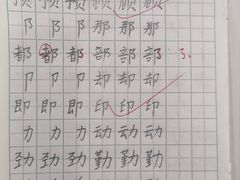 顶 顶 顶 顾 顾 顾
阝 阝 阝 那 那 那
都 都 都 部 部 部 3.
卩 卩 卩 却 却 却
即 即 即 印 印 印
力 力 力 动 动 动
劲 劲 劲 勤 勤 勤